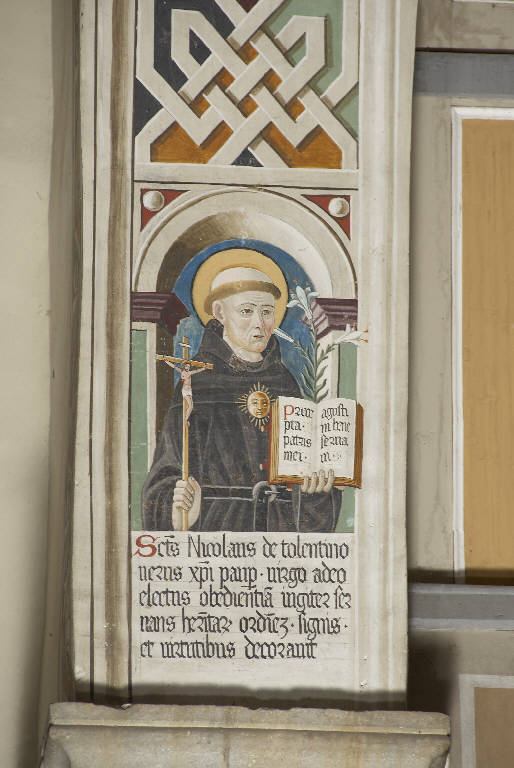 Prece
pta·
patris
mei·
agusti
ni bene
serua
ui·
Scts̄ Nicolaus de tolentino
uerus xp̄i paup· uirgo adeo
electus obedientiā iugiter ser
uans herītar ordinē3· signis·
et uirtutibus decorauit